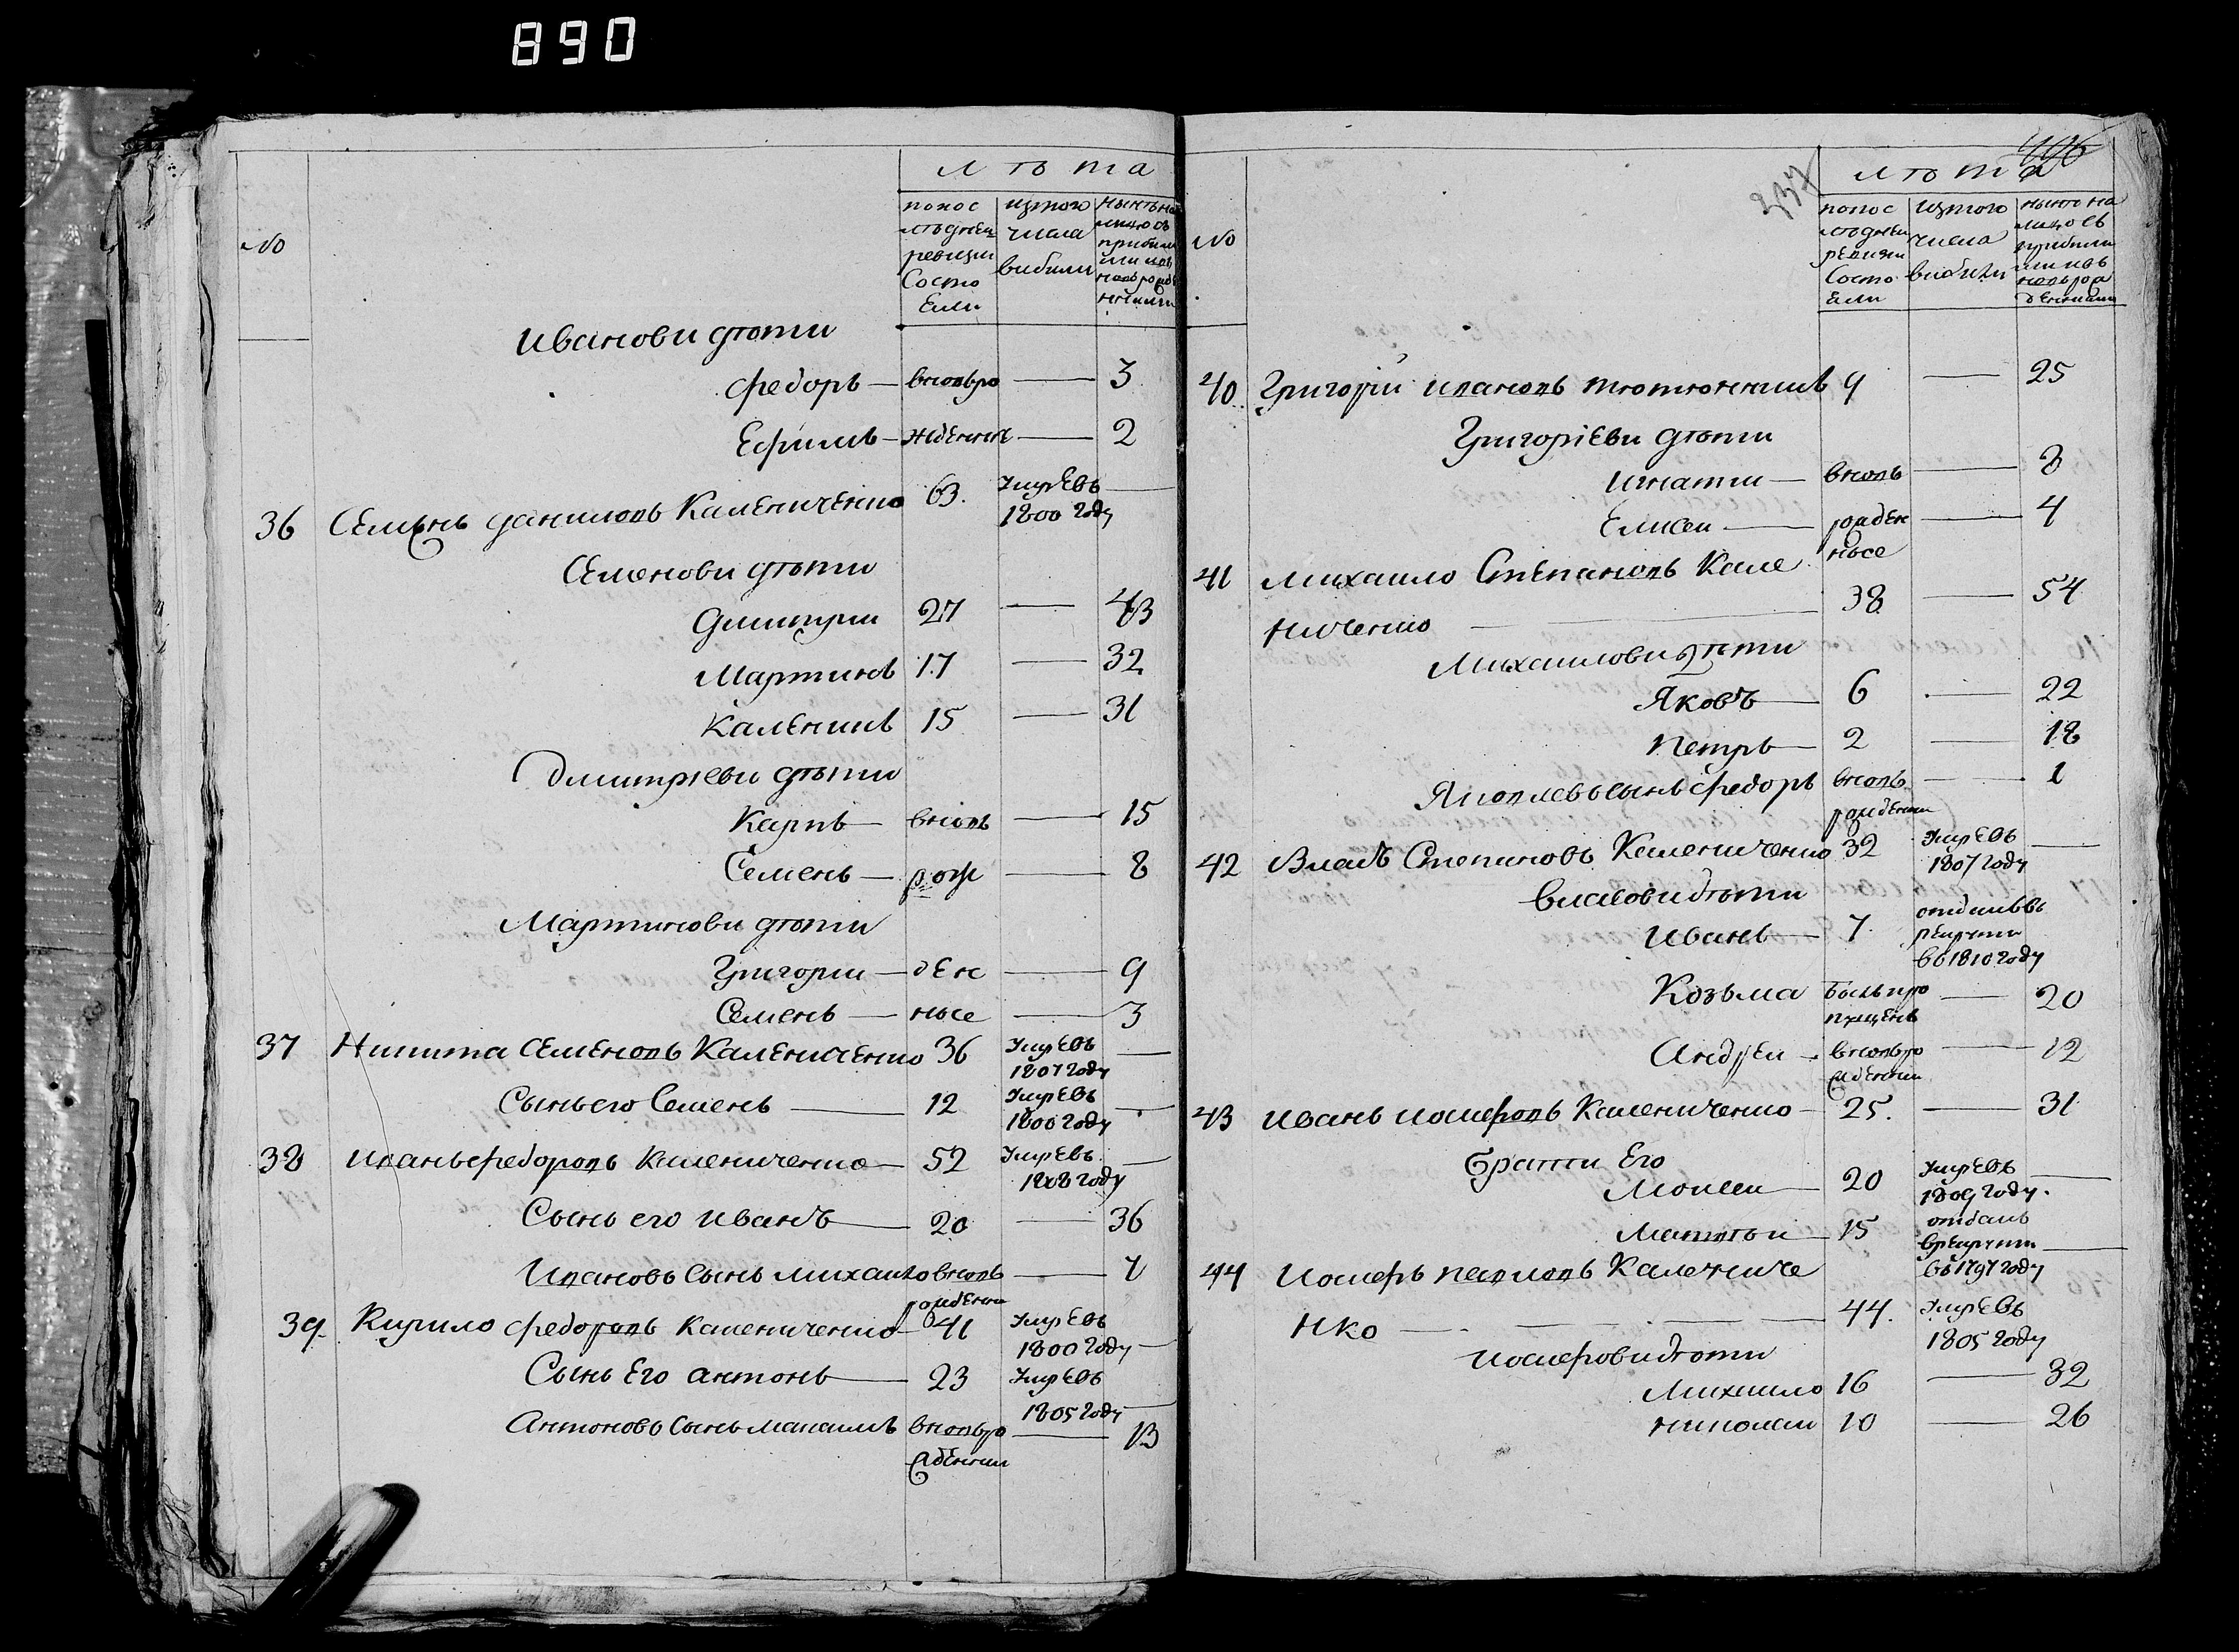 890
лѣта
№
попос
лѣдней
ревизии
Состо
Ели
изтого
числа
выбили
нынѣ на
лицо съ
прибыли
или изъ
новорож
денными
Иванови дѣти
Федоръ — вновьро — 3
Ефимъ — жденные — 2
36 Семенъ даниловъ Каленченко 63. умревъ 1800 году —
Семенови дѣти
Дмитрии 27 — 43
Мартинъ 17 — 32
Каленикъ 15 — 31
Дмитрiеви дѣти
Карпъ — вновь — 15
Семенъ — рож — 8
Мартинови дѣти
Григории — ден — 9
Семенъ — ные — 3
37 Никита Семеновъ Калениченко 36 умревъ 1807 году —
Сынъ его Семенъ — 12 умревъ 1800 году —
38 Иванъ Федоровъ Калениченко — 52 умревъ 1808 году —
Сынъ его Иванъ — 20 — 36
Ивановъ Сынъ Михаило вновь рожденни — 7
39. Кирило Федоровъ Калениченко — 41 умревъ 1800 году —
Сынъ Его Антонъ — 23 умревъ 1805 году —
Антоновъ Сынъ Макаимъ вновьро жденни — 13
237
лѣта
№
попос
лѣдней
ревизии
Состо
Ели
изтого
числа
выбили
нынѣ на
лицо съ
прибыли
или изъ
новорож
денными
40. Григорiй Ивановъ Тютюнникъ 9 — 25
Григорiеви дѣти
Игнатии — вновь — 8
Елисеи — рожден — 4
ные
41 Михаило Степановъ Кале
ниченко — 38 — 54
Михаилови дѣти
Яковъ — 6 — 22
Петръ — 2 — 18
Яковлевъ сынъ Федоръ вновь рожденни — 1
42 Власъ Степановъ Калениченко 32 умревъ 1807 году —
Власови дѣти
Иванъ — 7. отданъ въ рекрути въ 1810 году
Козьма былъ про пущенъ — 20
Андреи — вновьро жденни — 12
43 Иванъ Иосифовъ Калениченко — 25. — 31
Братии Его
Моисеи — 20 умревъ 1809 году. —
Матвѣи — 15 отданъ врекрути въ 1797 году —
44 Иосифъ Павловъ Калениче
нко — 44. умревъ 1805 году
Иосифови дѣти
Михаило 16 — 32
Николаи 10 — 26